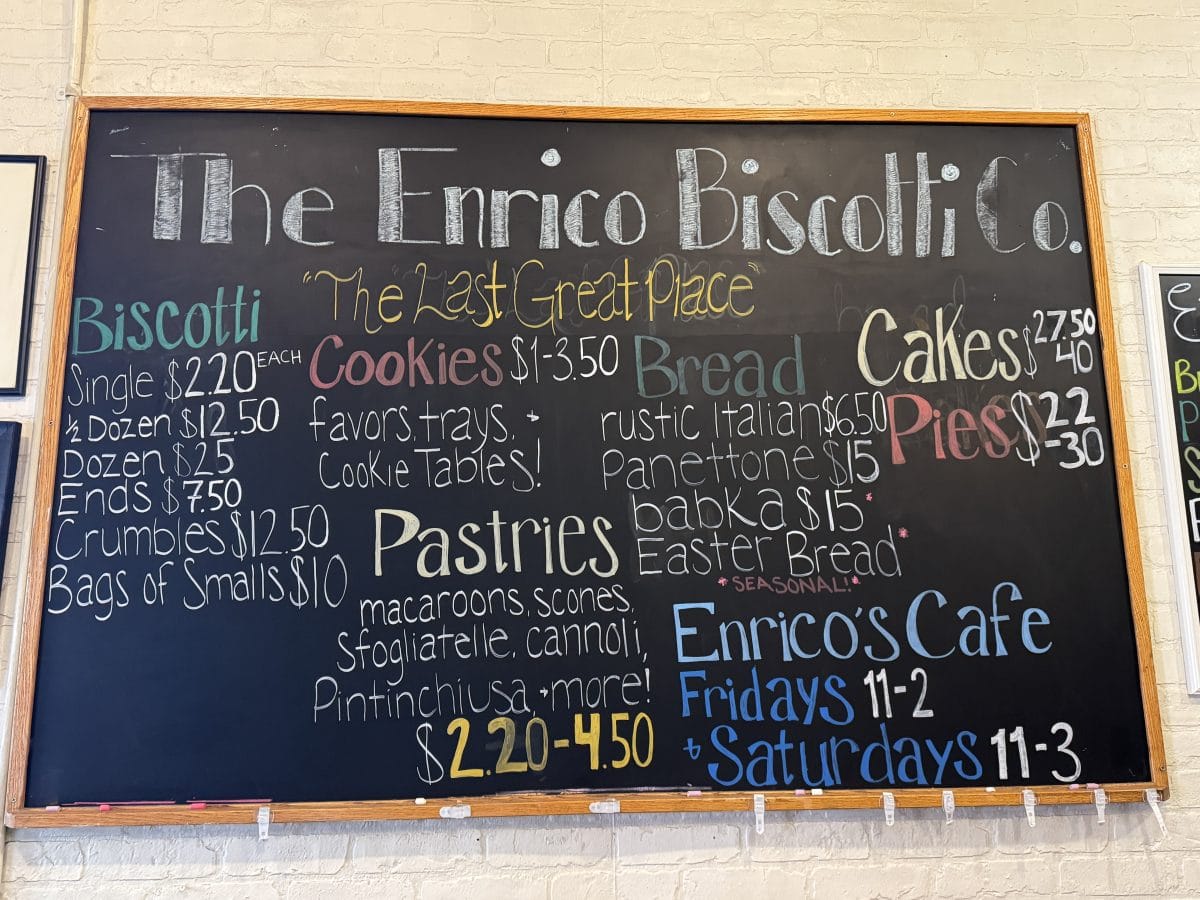 The Enrico Biscotti Co.
"The Last Great Place"
Biscotti
Single $2.20 EACH
½ Dozen $12.50
Dozen $25
Ends $7.50
Crumbles $12.50
Bags of Smalls $10
Cookies $1-3.50
favors, trays, +
Cookie Tables!
Pastries
macaroons, scones,
Sfogliatelle, cannoli,
Pintinchiusa, + more!
$2.20-4.50
Bread
rustic Italian $6.50
Panettone $15
babka $15*
Easter Bread*
*SEASONAL!*
Cakes $27.50
40
Pies $22
-30
Enrico's Cafe
Fridays 11-2
+ Saturdays 11-3